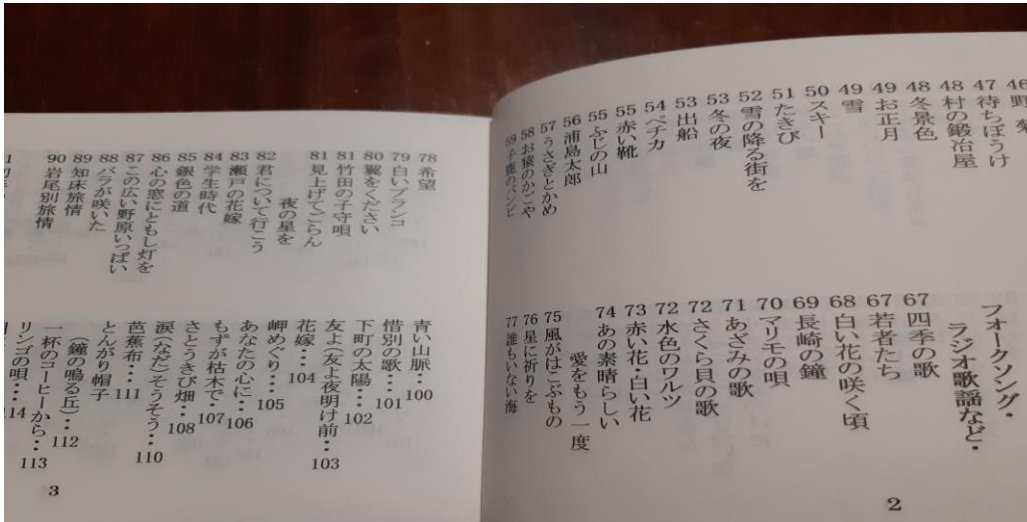 46 野菊
47 待ちぼうけ
48 村の鍛冶屋
48 冬景色
49 お正月
49 雪
50 スキー
51 たきび
52 雪の降る街を
53 冬の夜
53 出船
54 ペチカ
55 赤い靴
55 ふじの山
56 浦島太郎
57 うさぎとかめ
58 お猿のかごや
59 子鹿のバンビ
フォークソング・
ラジオ歌謡など・
67 四季の歌
67 若者たち
68 白い花の咲く頃
69 長崎の鐘
70 マリモの唄
71 あざみの歌
72 さくら貝の歌
72 水色のワルツ
73 赤い花・白い花
74 あの素晴らしい
愛をもう一度
75 風がはこぶもの
76 星に祈りを
77 誰もいない海
2
78 希望
79 白いブランコ
80 翼をください
81 竹田の子守唄
81 見上げてごらん
夜の星を
82 君について行こう
83 瀬戸の花嫁
84 学生時代
85 銀色の道
86 心の窓にともし灯を
87 この広い野原いっぱい
88 バラが咲いた
89 知床旅情
90 岩尾別旅情
青い山脈・・100
惜別の歌・・101
下町の太陽・・102
友よ(友よ夜明け前・・103
花嫁・・104
岬めぐり・・105
あなたの心に・・106
もずが枯木で・107
さとうきび畑・・108
涙(なだ)そうそう・・110
芭蕉布・・111
とんがり帽子
(鐘の鳴る丘)・・112
一杯のコーヒーから・・113
リンゴの唄・・114
3